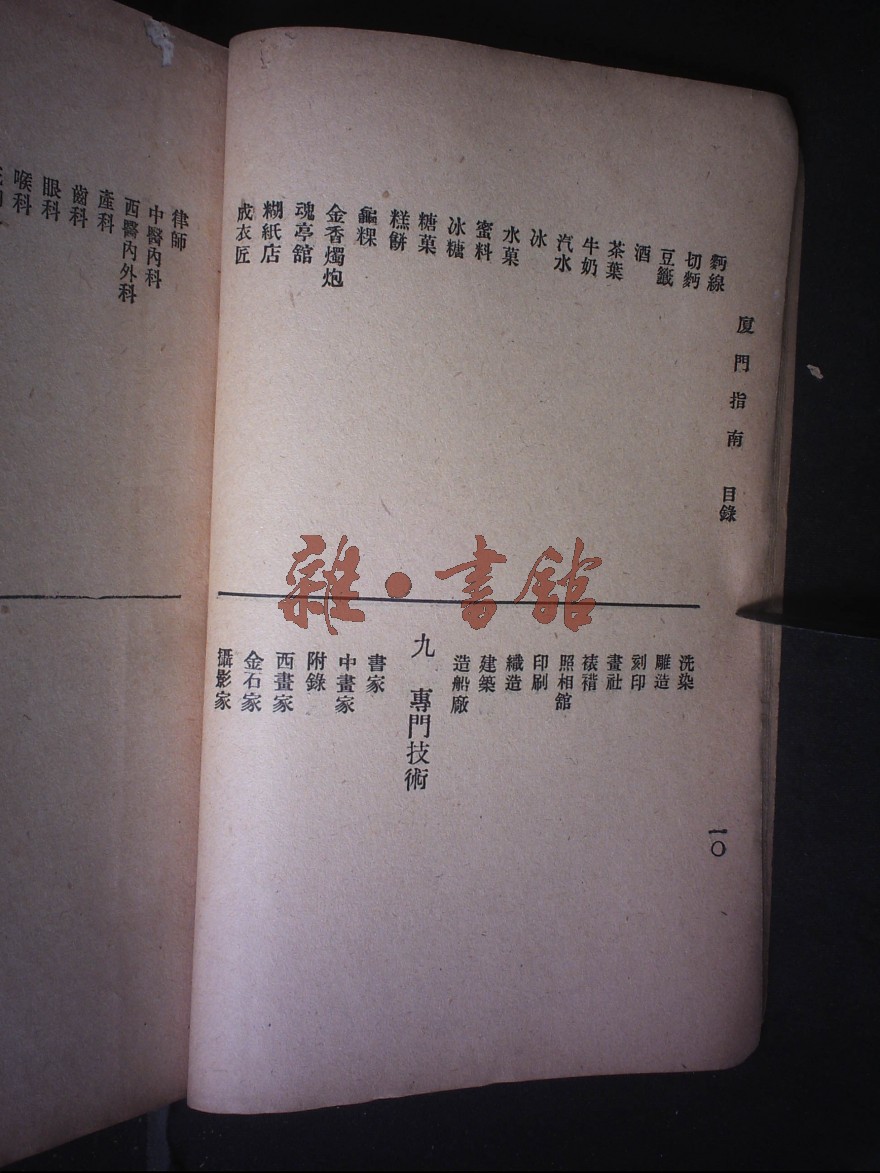 廈門指南 目錄
一〇
麪線
切麪
豆籤
酒
茶葉
牛奶
汽水
冰
水菓
蜜料
冰糖
糖菓
糕餅
龜粿
金香燭炮
魂亭館
糊紙店
成衣匠
洗染
雕造
刻印
畫社
裱褙
照相館
印刷
織造
建築
造船廠
九 專門技術
書家
中畫家
附錄
西畫家
金石家
攝影家
律師
中醫內科
西醫內外科
產科
齒科
眼科
喉科
雜·書館